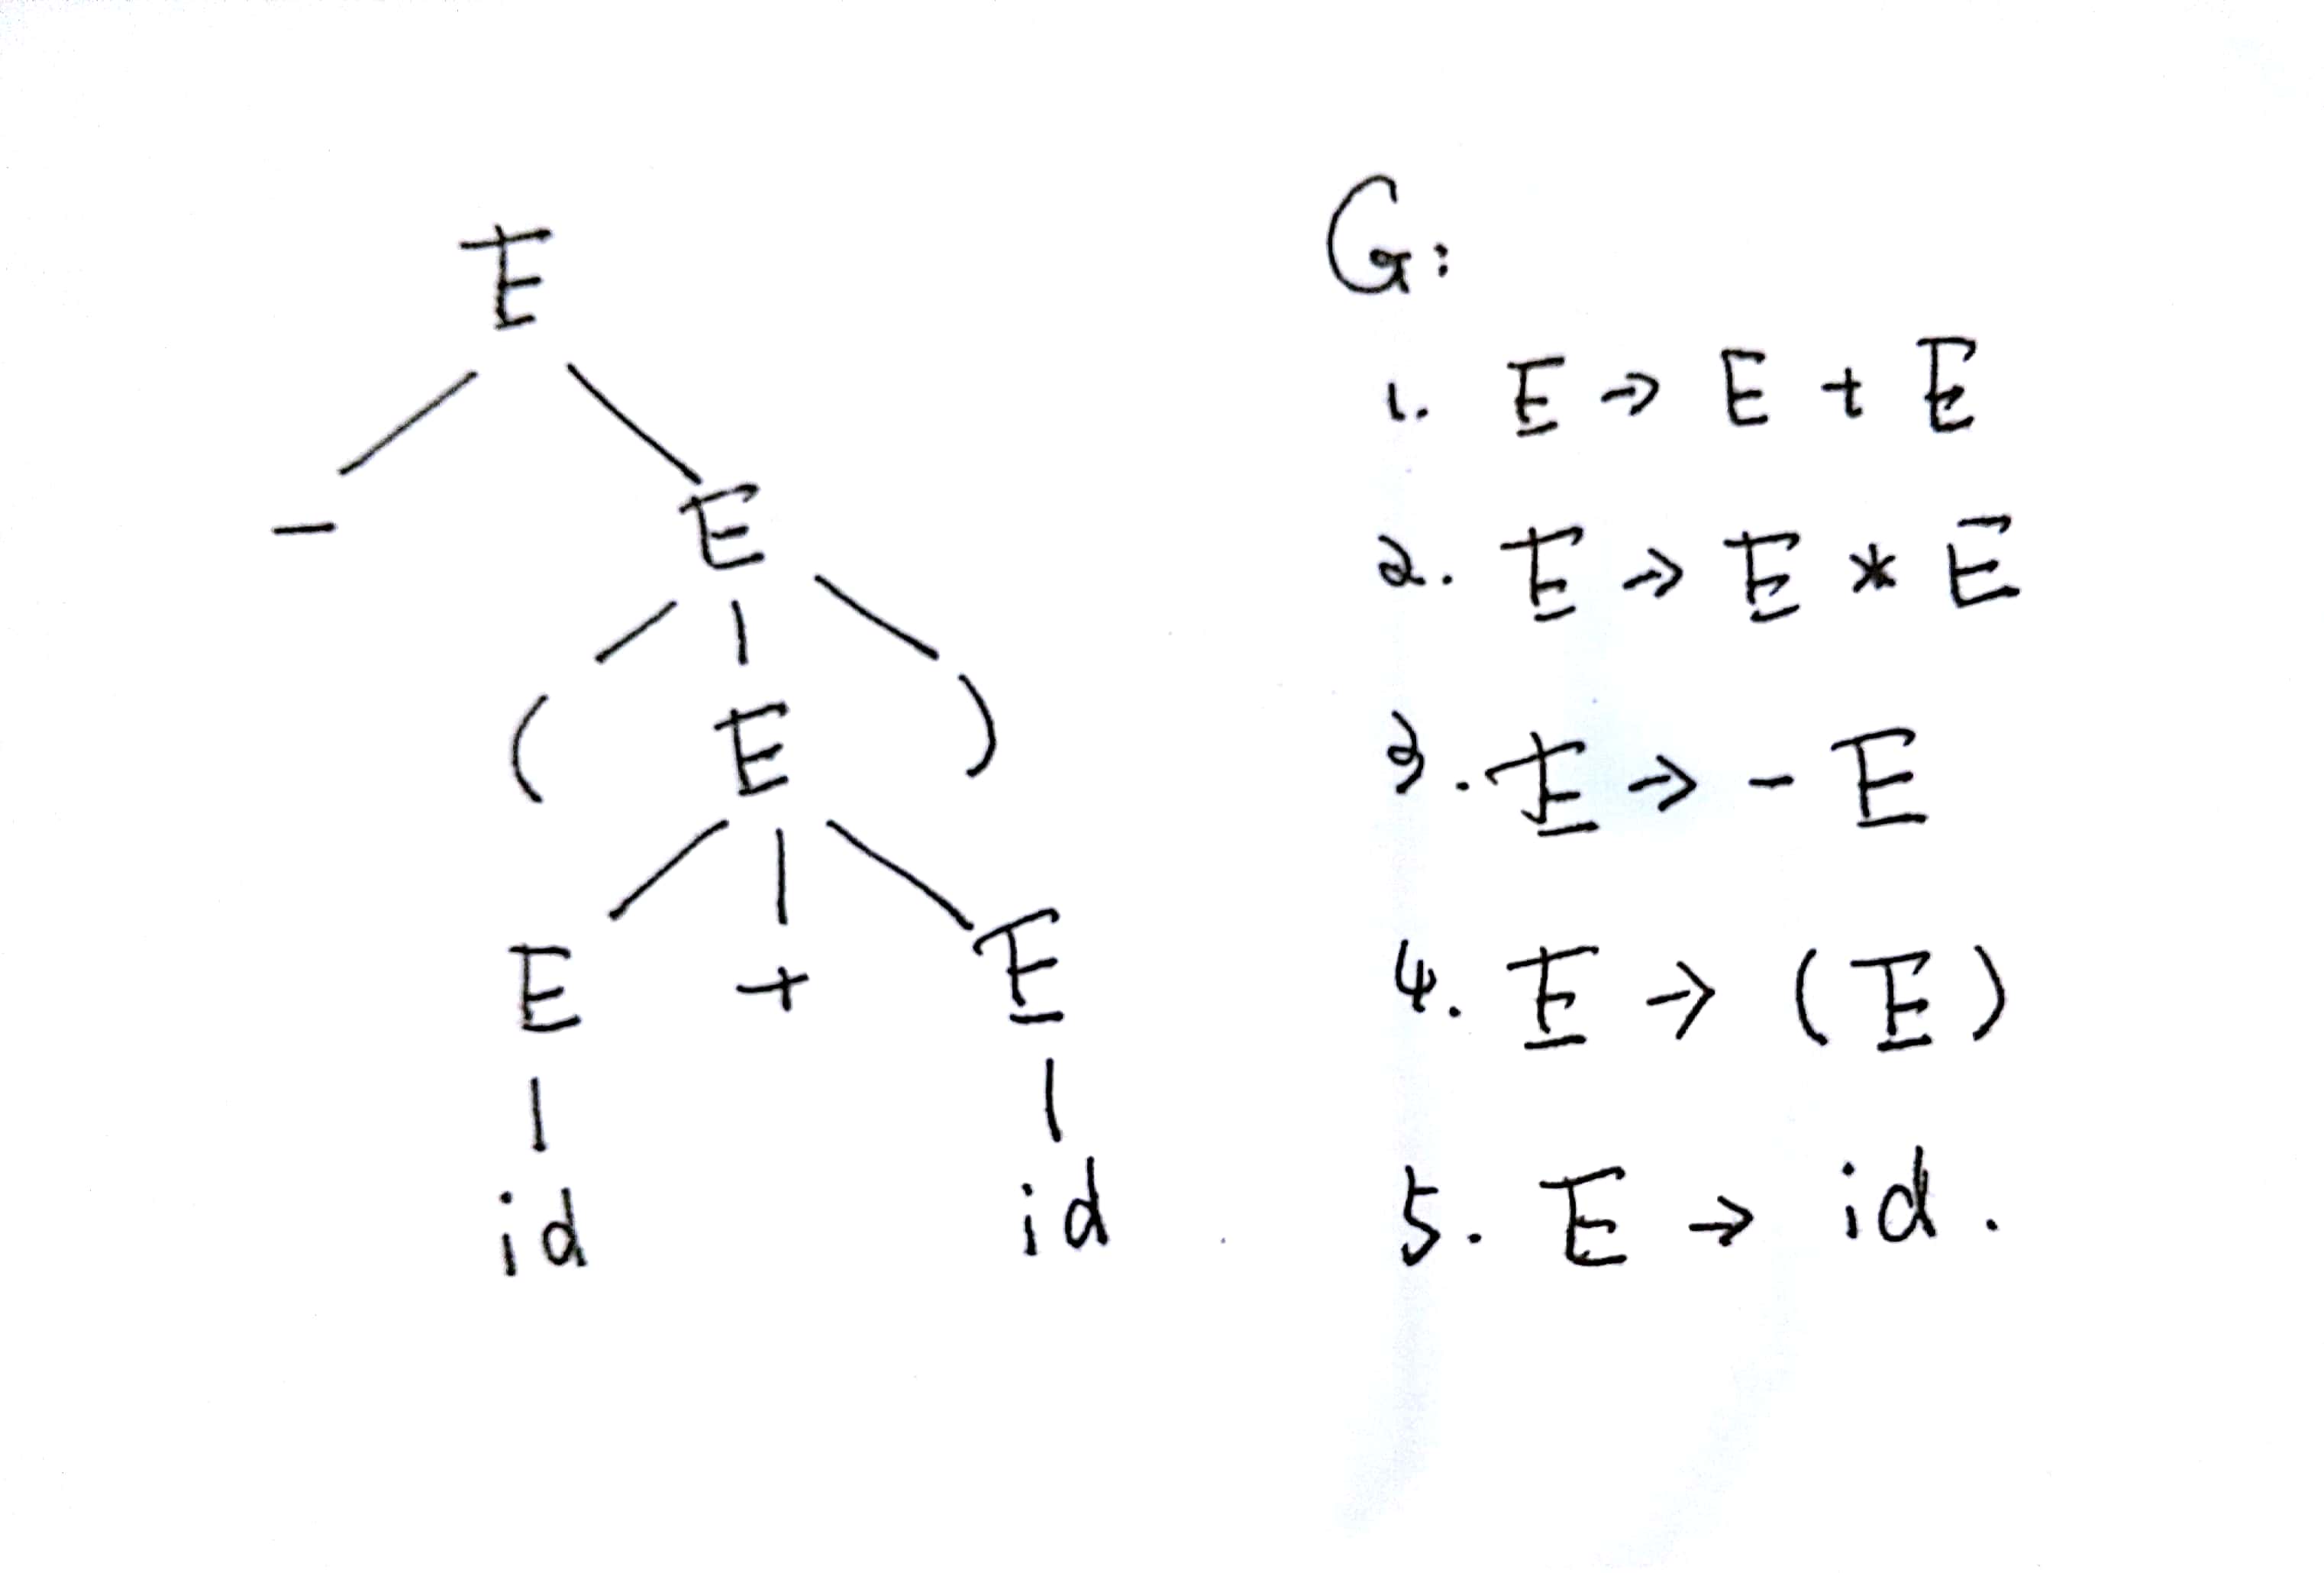 E
- E
( E )
E + E
id id
G:
1. E → E + E
2. E → E * E
3. E → - E
4. E → ( E )
5. E → id .